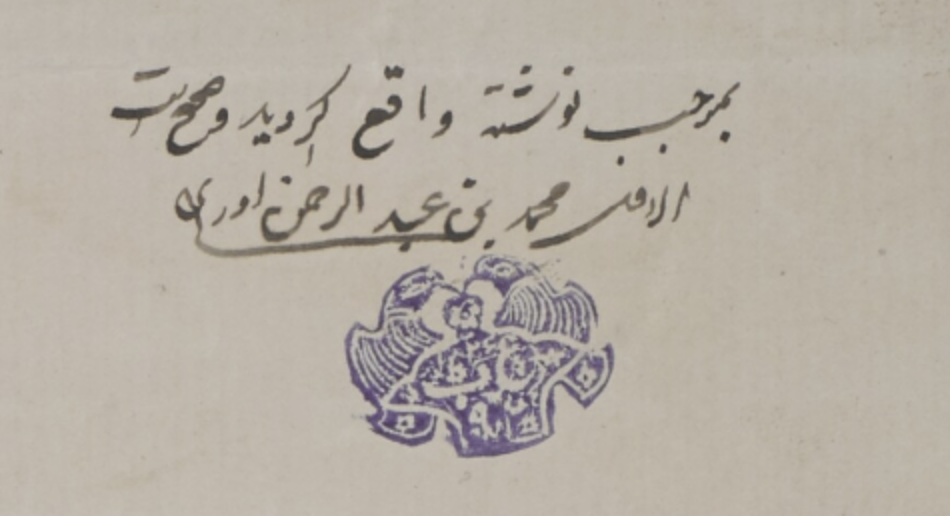 بموجب نوشتة واقع گردید وصحیح است
الاقل محمد بن عبد الرحمن اوری